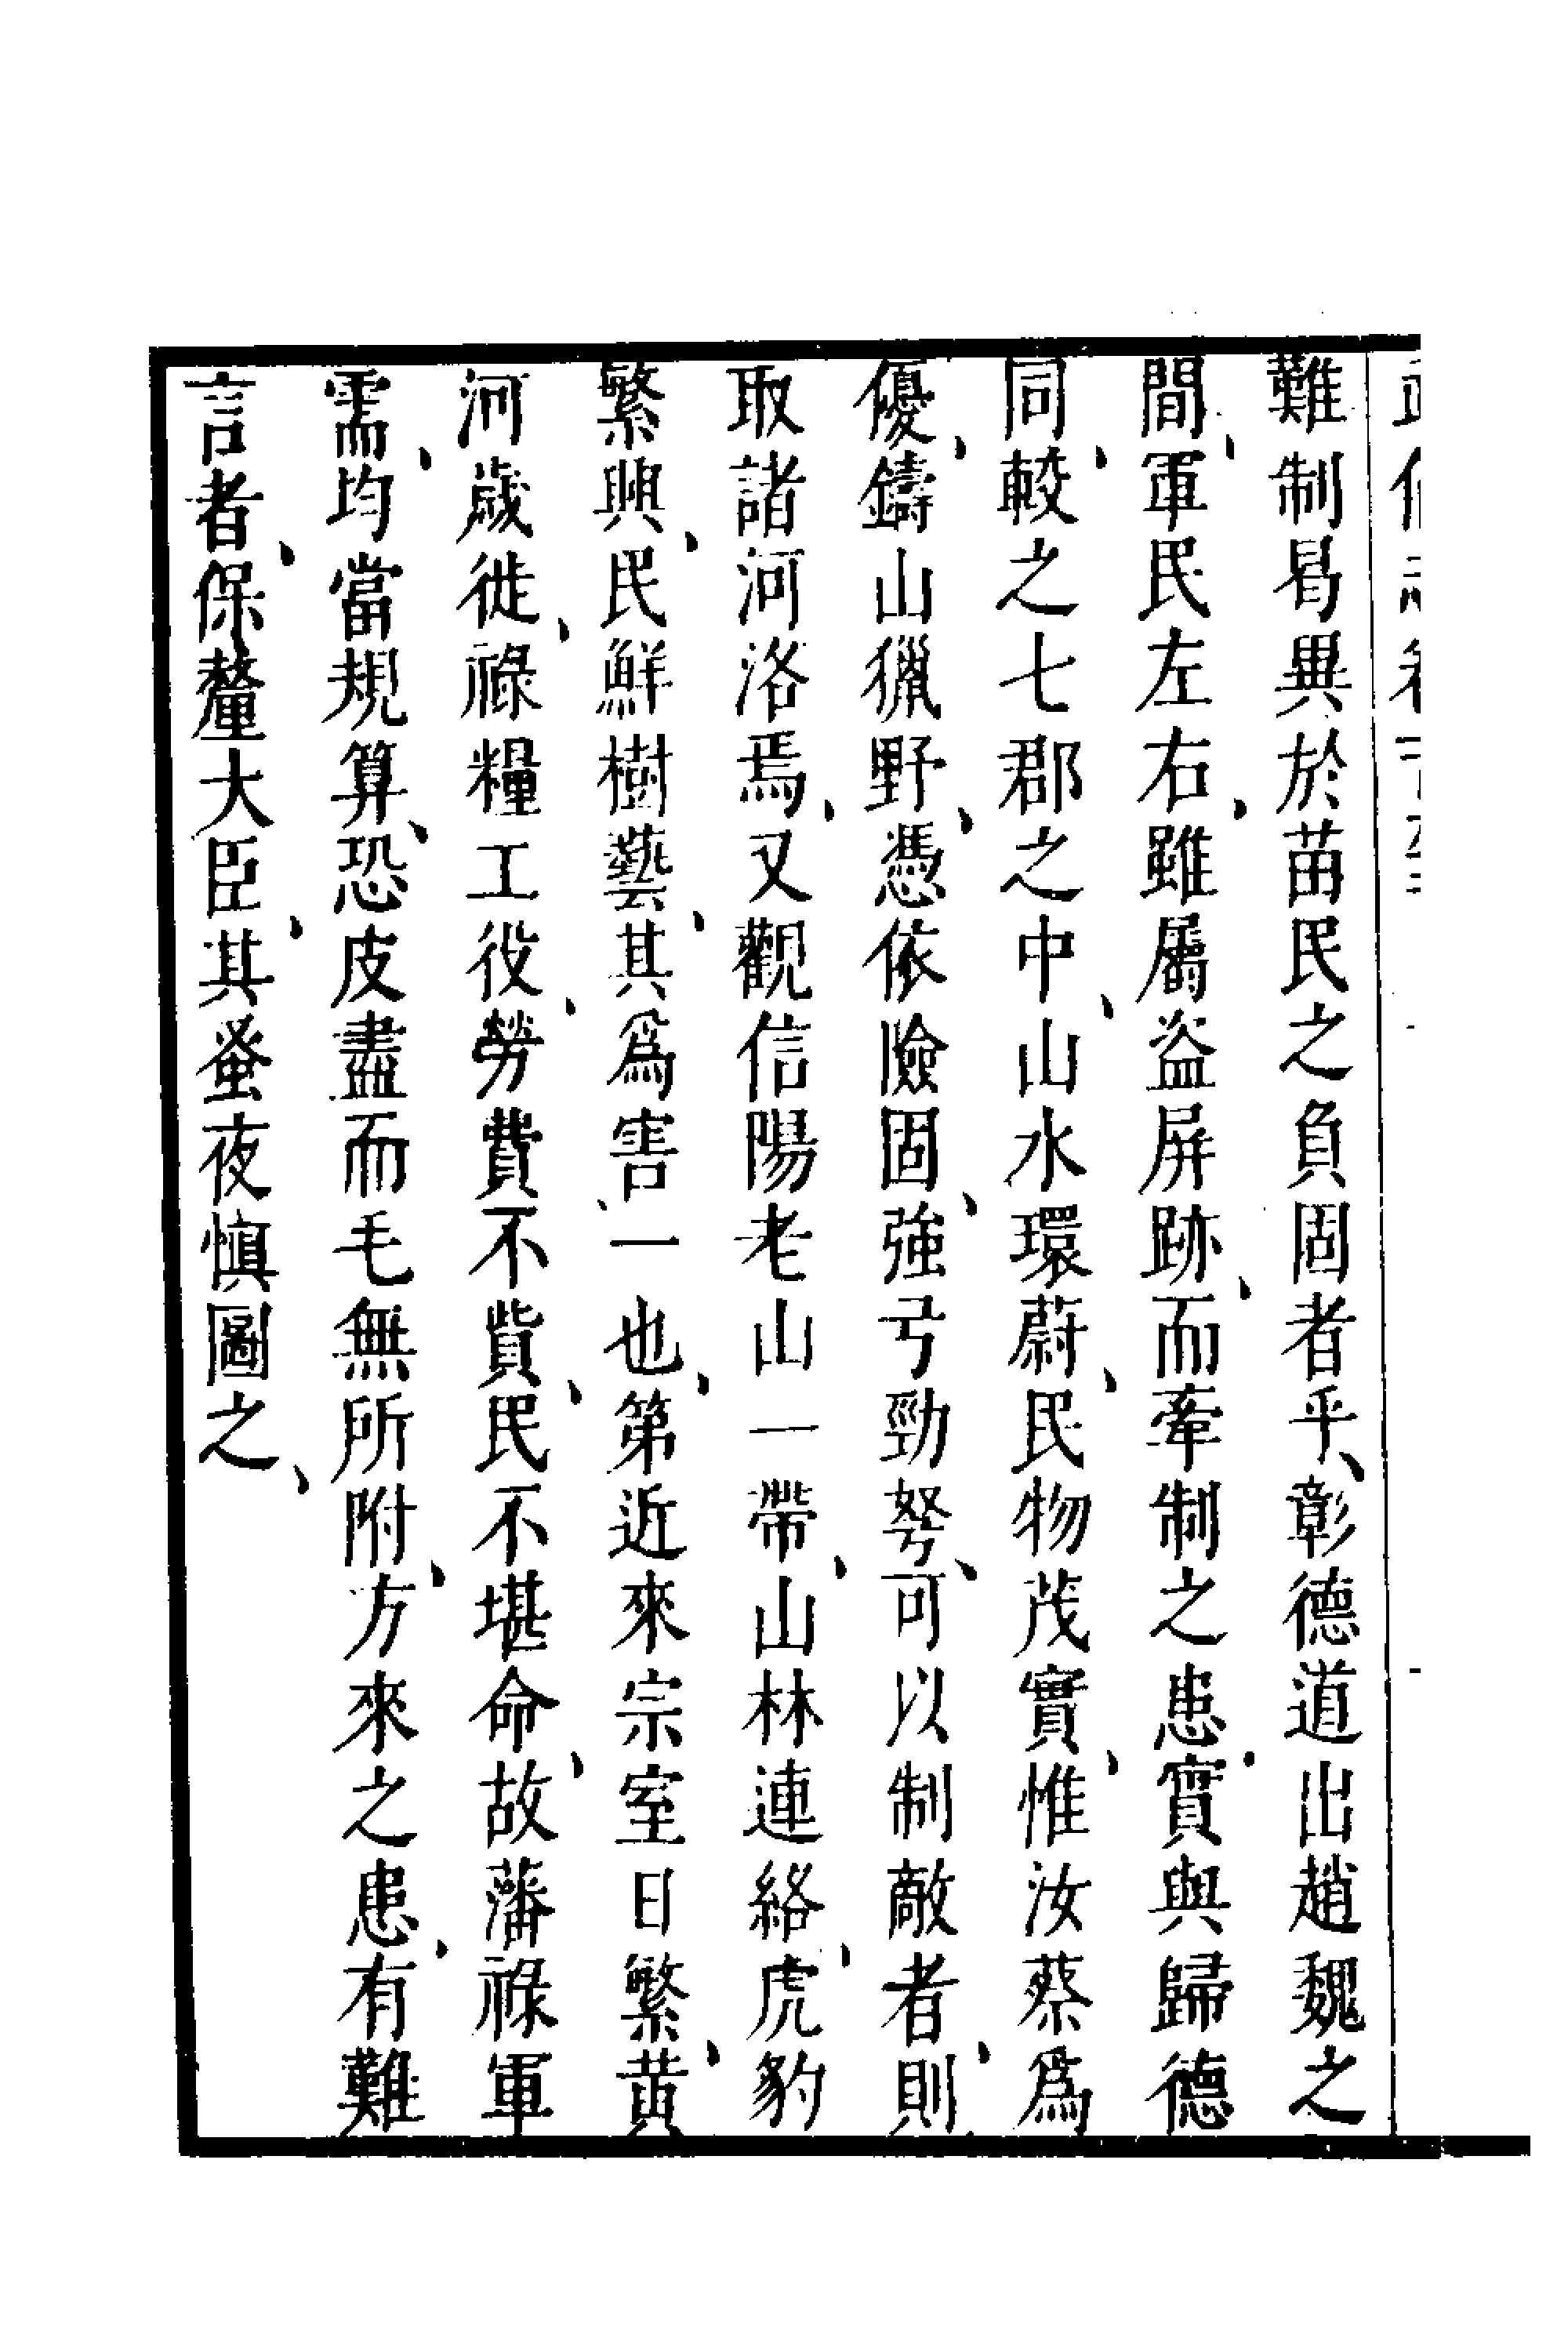 難制曷異於苗民之負固者乎、彰德道出趙魏之
間、軍民左右、雖屬盜屏跡、而牽制之患、實與歸德
同、較之七郡之中、山水環蔚、民物茂實、惟汝蔡爲
優、鑄山獵野、憑依險固、強弓勁弩、可以制敵者、則
取諸河洛焉、又觀信陽老山一帶、山林連絡、虎豹
繁興、民鮮樹藝、其爲害、一也、第近來宗室日繁、黃
河歲徙、祿糧工役、勞費不貲、民不堪命、故藩祿軍
需、均當規算、恐皮盡而毛無所附、方來之患、有難
言者、保釐大臣、其蚤夜慎圖之、